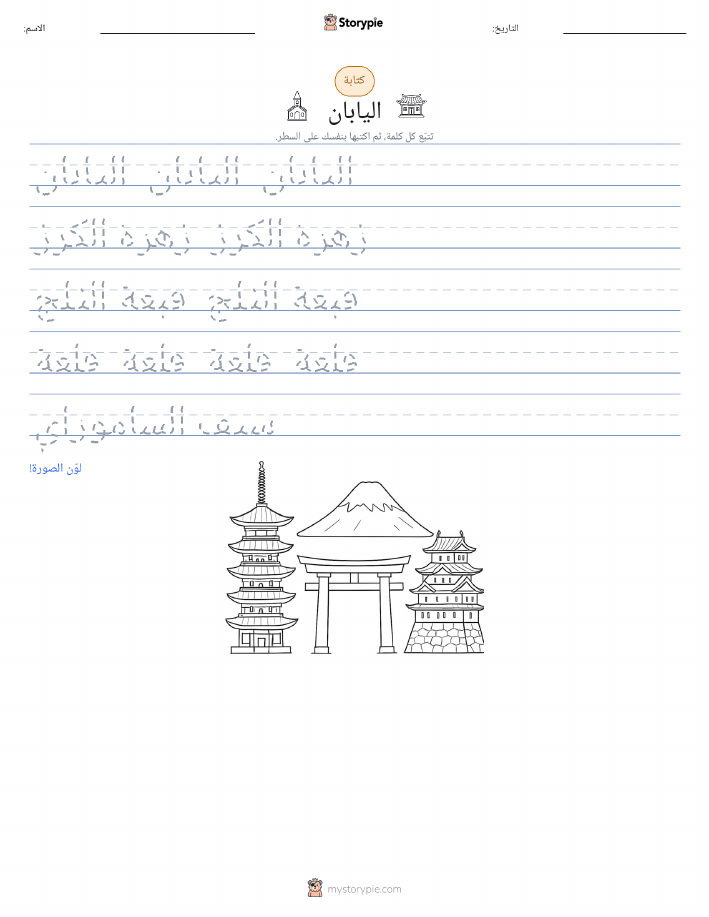 الاسم:
Storypie
التاريخ:
كتابة
اليابان
تتبّع كل كلمة، ثم اكتبها بنفسك على السطر.
اليابان اليابان اليابان
زهرة الكرز زهرة الكرز
قبعة الثلج قبعة الثلج
قلعة قلعة قلعة قلعة
سيف الساموراي
لوّن الصورة!
mystorypie.com